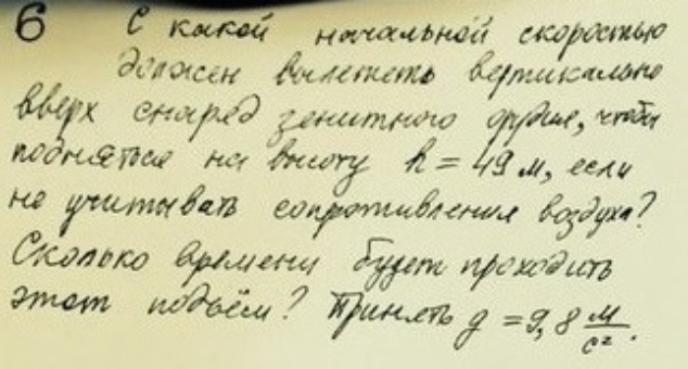 6 С какой начальной скоростью
должен вылететь вертикально
вверх снаряд зенитного орудия, чтобы
подняться на высоту h = 49 м, если
не учитывать сопротивления воздуха?
Сколько времени будет проходить
этот подъём? Принять g = 9,8 м/с².